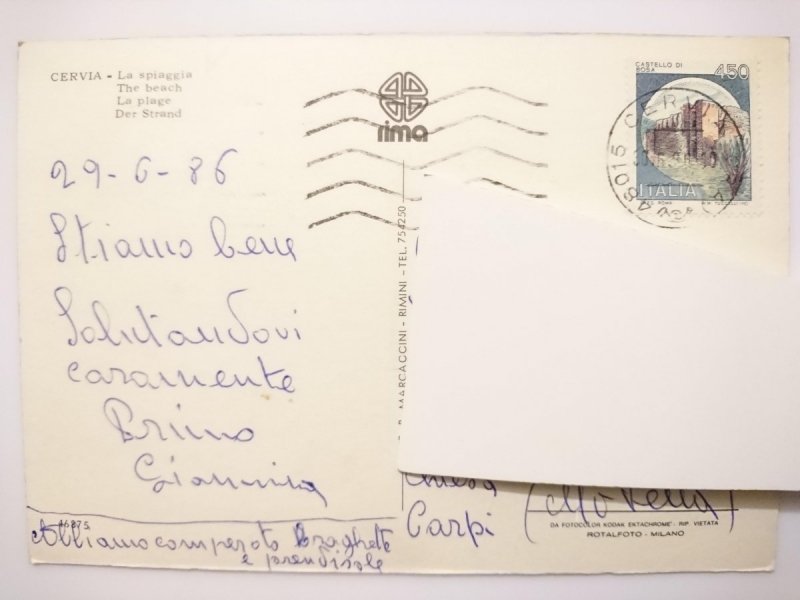 CERVIA - La spiaggia
The beach
La plage
Der Strand
rima
CASTELLO DI
BOSA
450
ITALIA
48015 CERVIA
29-6-86
Stiamo bene
Salutandovi
caramente
Bruno
Giannina
46875
Abbiamo comperato Braghete
e prendisole
MARCACCINI - RIMINI - TEL. 754250
Chiesa
Carpi
DA FOTOCOLOR KODAK EKTACHROME - RIP. VIETATA
ROTALFOTO - MILANO